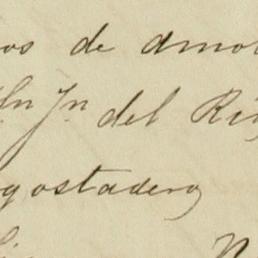 os de amo
Sn Jn del Ri
gostadero